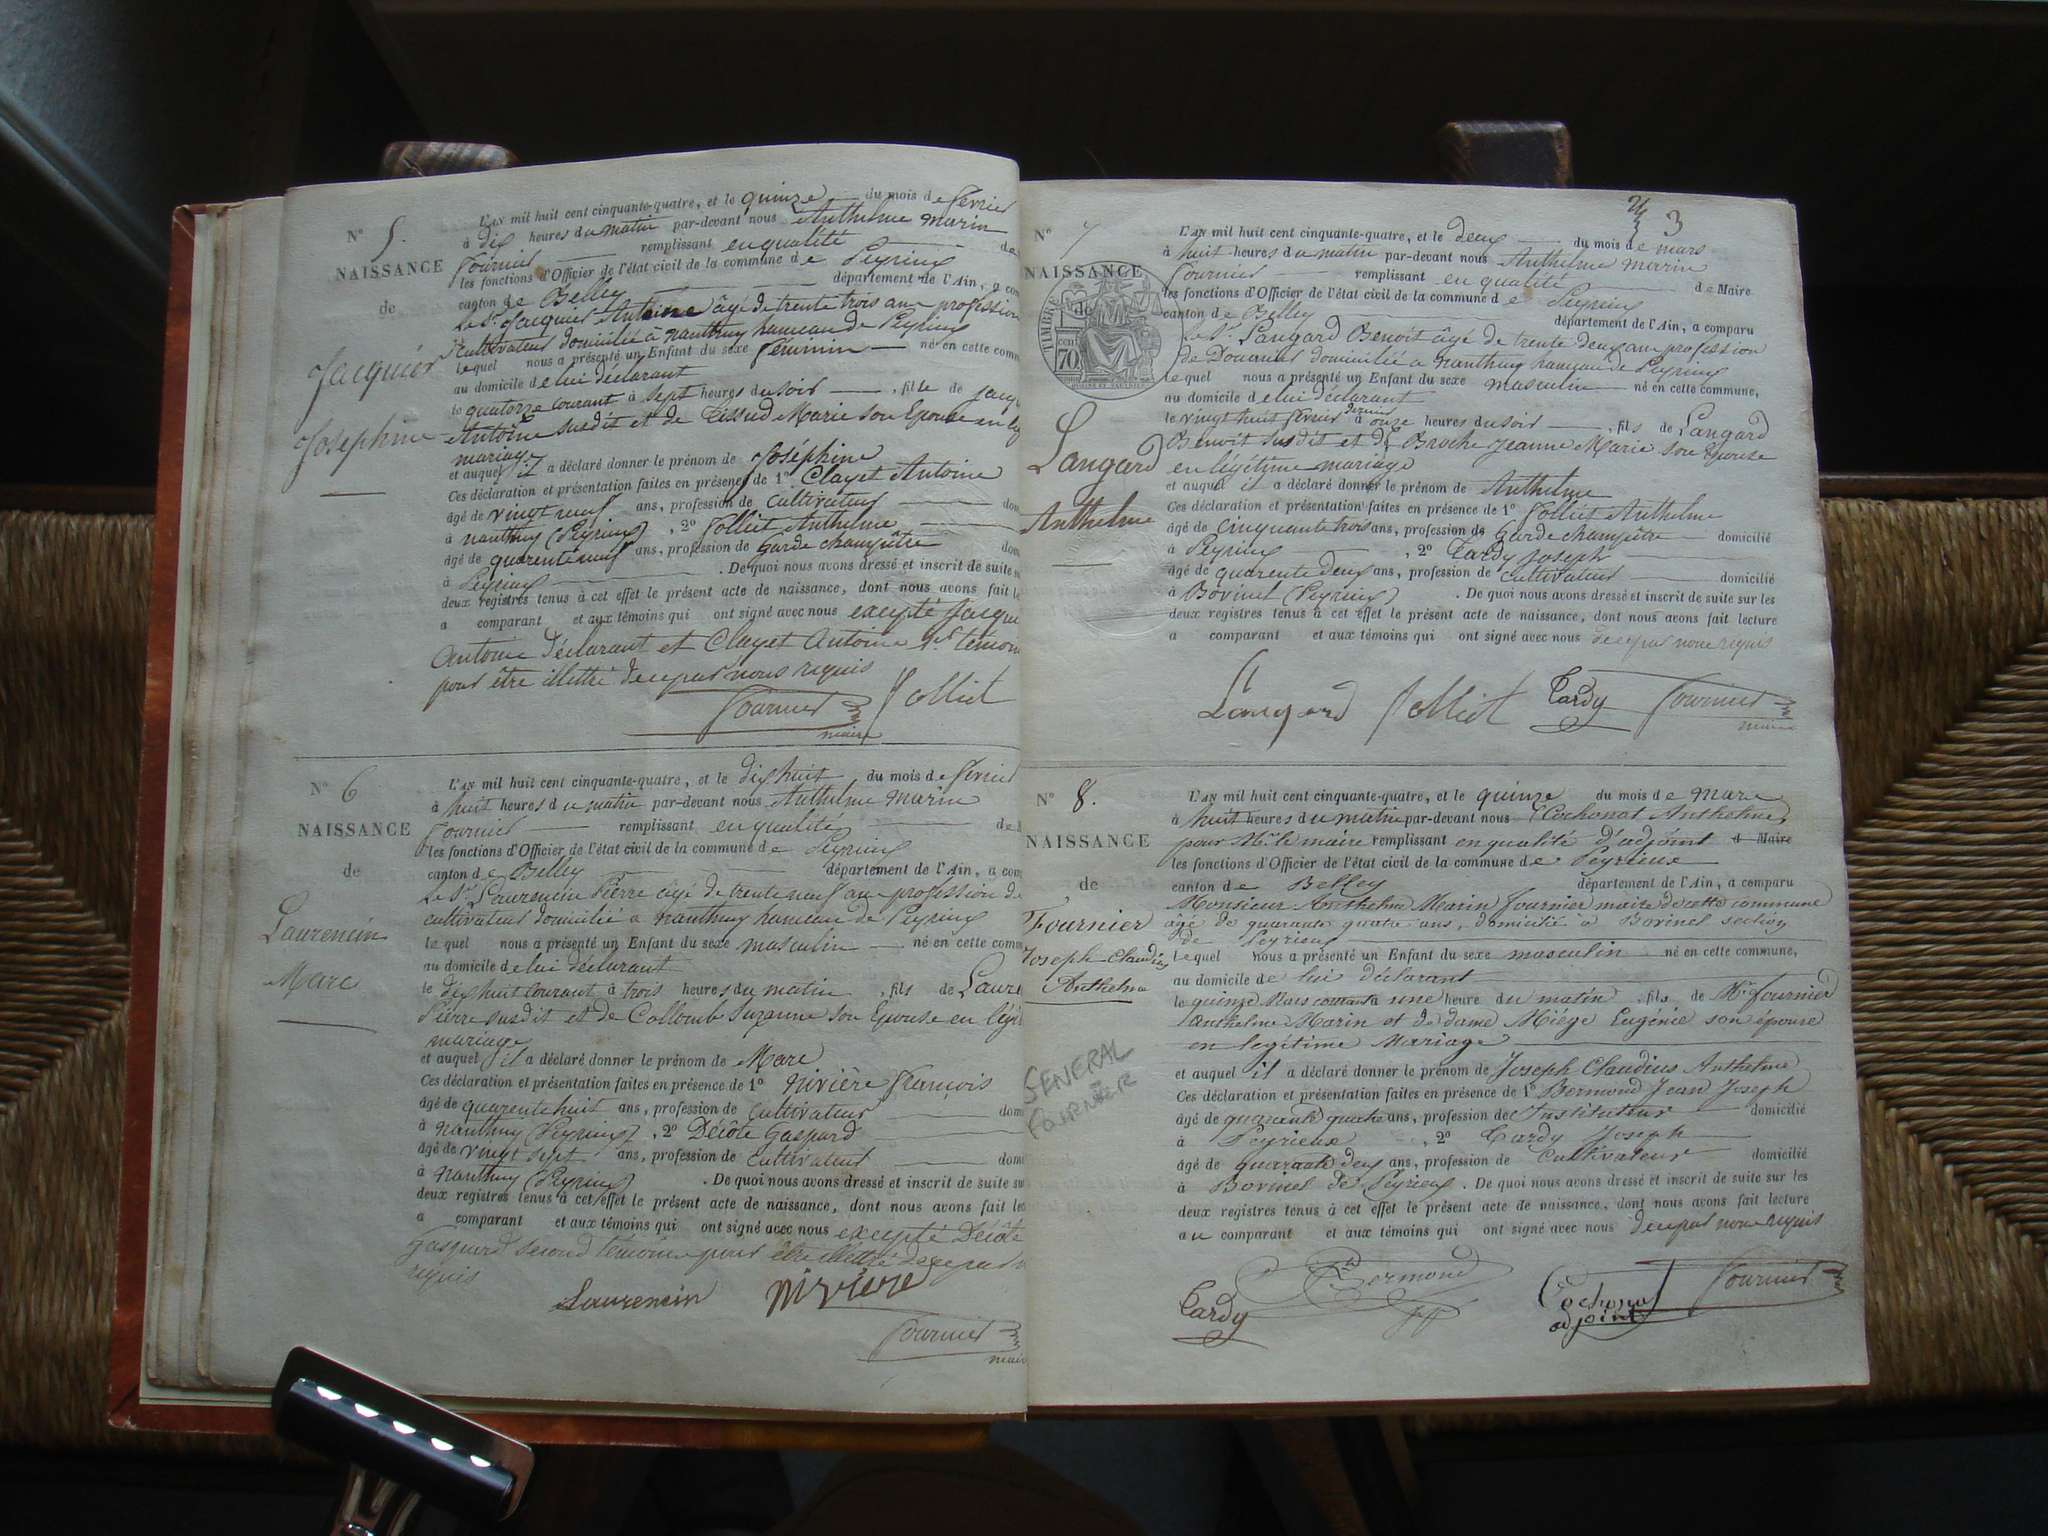 N° 5.
NAISSANCE
de
Jacquier
Joséphine
L'AN mil huit cent cinquante-quatre, et le quinze du mois de février
à dix heures du matin par-devant nous Anthelme Marin
Fournier remplissant en qualité de
les fonctions d'Officier de l'état civil de la commune de Peyrieux
canton de Belley département de l'Ain, a com
le Sr Jacquier Antoine âgé de trente trois ans profession
cultivateur domicilié à Nanthuy hameau de Peyrieux
lequel nous a présenté un Enfant du sexe féminin né en cette comm
au domicile de lui déclarant
le quatorze courant à sept heures du soir, fille de Jacqu
Antoine susdit et de Marie son Epouse en lég
mariage
et auquel il a déclaré donner le prénom de Joséphine
Ces déclaration et présentation faites en présence de 1° Clayet Antoine
âgé de vingt neuf ans, profession de cultivateur dom
à Nanthuy (Peyrieux), 2° Jolliet Anthelme
âgé de quarente neuf ans, profession de Garde champêtre dom
à Peyrieux. De quoi nous avons dressé et inscrit de suite su
deux registres tenus à cet effet le présent acte de naissance, dont nous avons fait le
a comparant et aux témoins qui ont signé avec nous excepté Jacqu
Antoine déclarant et Clayet Antoine 1er témoin
pour être illettré de ce par nous requis
Fournier Jolliet
maire
N° 6
NAISSANCE
de
Laurencin
Marc
L'AN mil huit cent cinquante-quatre, et le dix huit du mois de février
à huit heures du matin par-devant nous Anthelme Marin
Fournier remplissant en qualité de
les fonctions d'Officier de l'état civil de la commune de Peyrieux
canton de Belley département de l'Ain, a com
le Sr Laurencin Pierre âgé de trente neuf ans profession de
cultivateur domicilié a Nanthuy hameau de Peyrieux
lequel nous a présenté un Enfant du sexe masculin né en cette comm
au domicile de lui déclarant
le dix huit courant à trois heures du matin, fils de Laure
Pierre susdit et de Collomb Suzanne son Epouse en légi
mariage
et auquel il a déclaré donner le prénom de Marc
Ces déclaration et présentation faites en présence de 1° Nivière François
âgé de quarente huit ans, profession de cultivateur dom
à Nanthuy (Peyrieux), 2° Décôte Gaspard
âgé de vingt sept ans, profession de cultivateur dom
à Nanthuy (Peyrieux). De quoi nous avons dressé et inscrit de suite su
deux registres tenus à cet effet le présent acte de naissance, dont nous avons fait le
a comparant et aux témoins qui ont signé avec nous excepté Décôte
Gaspard second témoin pour être illettré de ce par n
requis
Laurencin Nivière
Fournier
maire
3
N° 7
NAISSANCE
de
TIMBRE
70
Langard
Anthelme
L'AN mil huit cent cinquante-quatre, et le deux du mois de mars
à huit heures du matin par-devant nous Anthelme Marin
Fournier remplissant en qualité de Maire
les fonctions d'Officier de l'état civil de la commune de Peyrieux
canton de Belley département de l'Ain, a comparu
le Sr Langard Benoit âgé de trente deux ans profession
de Douanes domicilié a Nanthuy hameau de Peyrieux
lequel nous a présenté un Enfant du sexe masculin né en cette commune,
au domicile de lui déclarant
le vingt huit février dernier à onze heures du soir, fils de Langard
Benoit susdit et de Broche Jeanne Marie son Epouse
en légitime mariage
et auquel il a déclaré donner le prénom de Anthelme
Ces déclaration et présentation faites en présence de 1° Jolliet Anthelme
âgé de cinquante trois ans, profession de Garde champêtre domicilié
à Peyrieux, 2° Tardy Joseph
âgé de quarente deux ans, profession de cultivateur domicilié
à Bovinel (Peyrieux). De quoi nous avons dressé et inscrit de suite sur les
deux registres tenus à cet effet le présent acte de naissance, dont nous avons fait lecture
a comparant et aux témoins qui ont signé avec nous de ce par nous requis
Langard Jolliet Tardy Fournier
maire
N° 8.
NAISSANCE
de
Fournier
Joseph Claudius
Anthelme
GENERAL
FOURNIER
L'AN mil huit cent cinquante-quatre, et le quinze du mois de Mars
à huit heures du matin par-devant nous Cochonat Anthelme,
pour Mr le maire remplissant en qualité d'adjoint de Maire
les fonctions d'Officier de l'état civil de la commune de Peyrieux
canton de Belley département de l'Ain, a comparu
Monsieur Anthelme Marin Fournier maire de cette commune
âgé de quarante quatre ans, domicilié à Bovinel section
de Peyrieux
lequel nous a présenté un Enfant du sexe masculin né en cette commune,
au domicile de lui déclarant
le quinze Mars courant à une heure du matin, fils de Mr Fournier
Anthelme Marin et de dame Miège Eugénie son épouse
en legitime Mariage
et auquel il a déclaré donner le prénom de Joseph Claudius Anthelme
Ces déclaration et présentation faites en présence de 1° Bermond Jean Joseph
âgé de quarante quatre ans, profession de Instituteur domicilié
à Peyrieux, 2° Tardy Joseph
âgé de quarante deux ans, profession de Cultivateur domicilié
à Bovinel de Peyrieux. De quoi nous avons dressé et inscrit de suite sur les
deux registres tenus à cet effet le présent acte de naissance, dont nous avons fait lecture
au comparant et aux témoins qui ont signé avec nous de ce par nous requis
Tardy Bermond Cochonat Fournier
adjoint